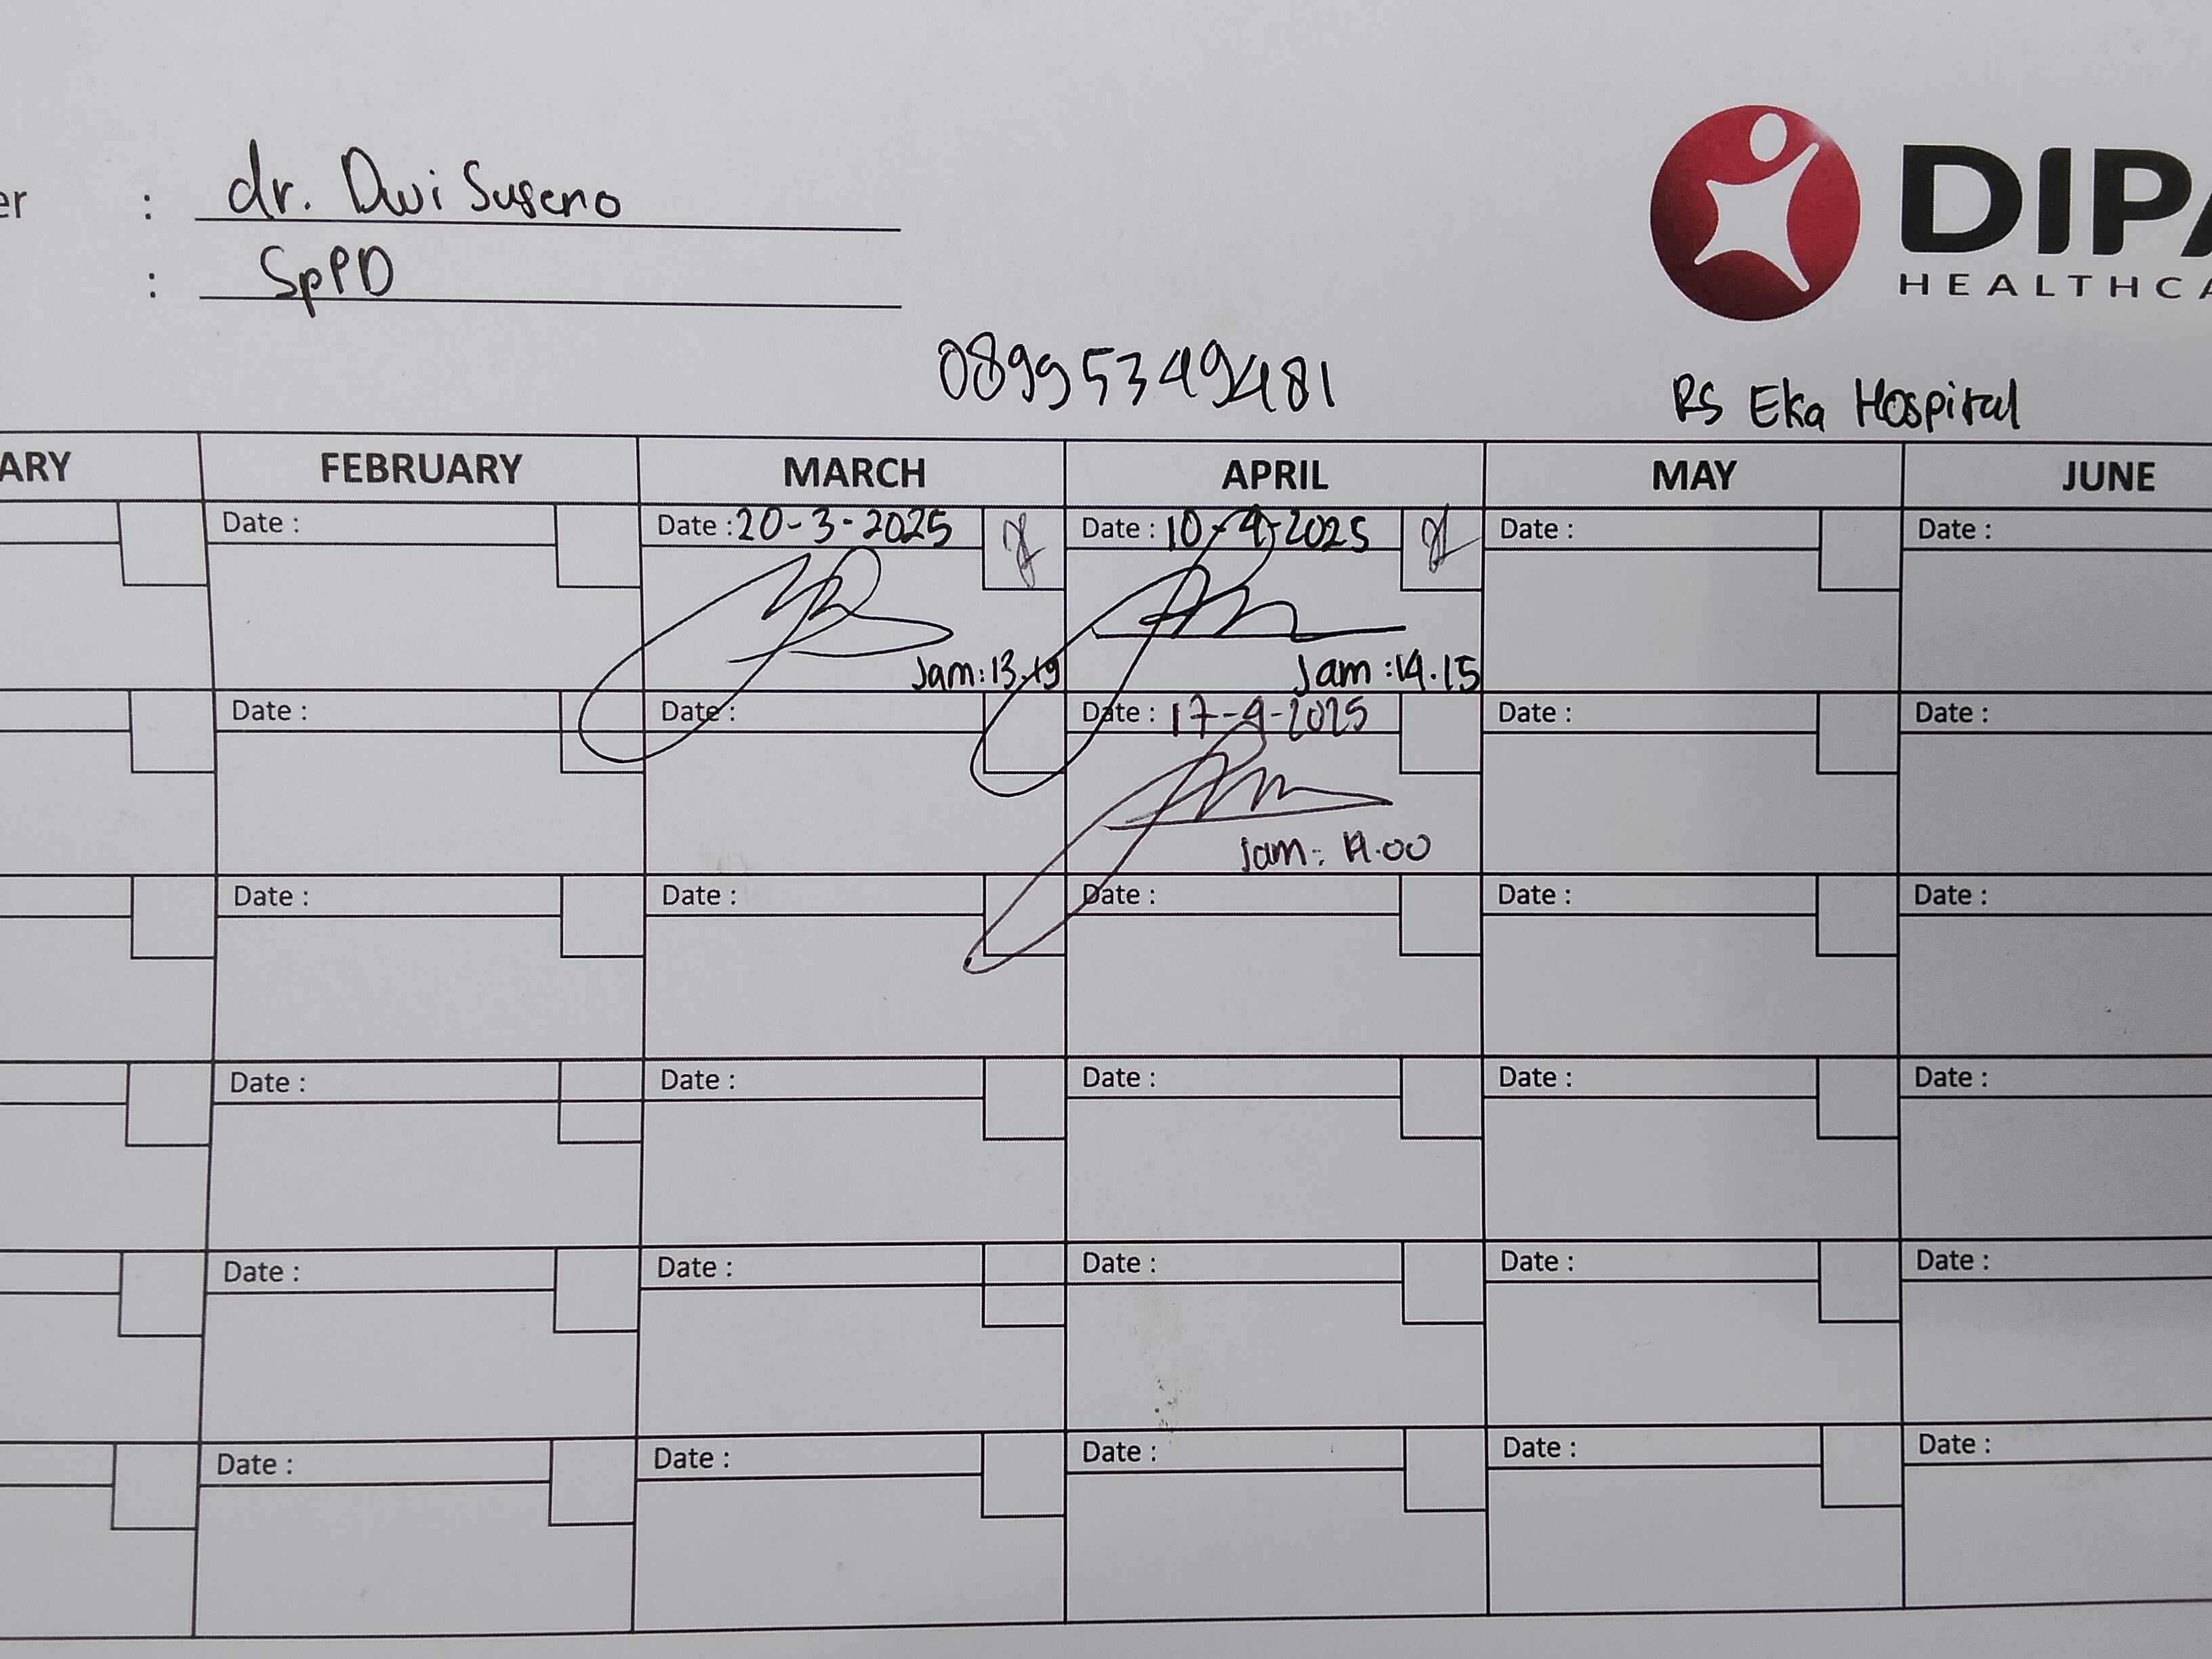 er : dr. Dwi Suseno
: SpPD
DIPA
HEALTHCA
08995349481
RS Eka Hospital
ARY FEBRUARY MARCH APRIL MAY JUNE
Date : Date : 20-3-2025 Date : 10-4-2025 Date : Date :
Jam : 13.19 Jam : 14.15
Date : Date : Date : 17-4-2025 Date : Date :
Jam : 14.00
Date : Date : Date : Date : Date :
Date : Date : Date : Date : Date :
Date : Date : Date : Date : Date :
Date : Date : Date : Date : Date :